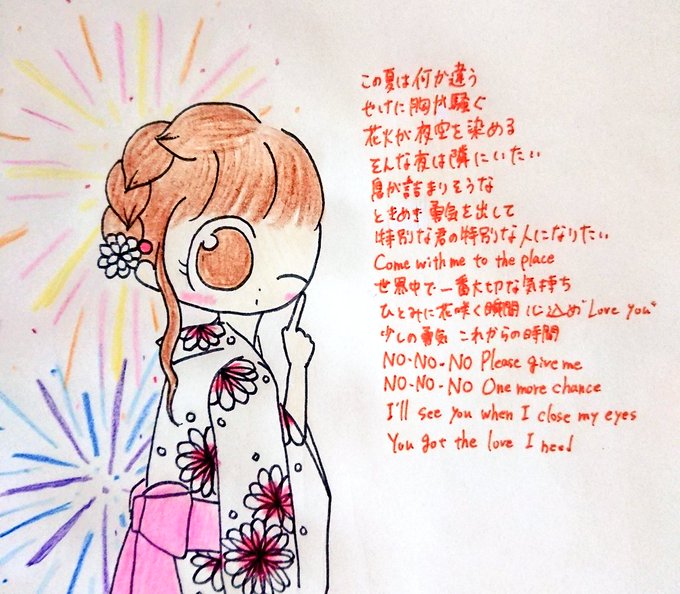 この夏は何か違う
やけに胸が騒ぐ
花火が夜空を染める
そんな夜は隣にいたい
息が詰まりそうな
ときめき勇気を出して
特別な君の特別な人になりたい
Come with me to the place
世界中で一番大切な気持ち
ひとみに花咲く瞬間 心込め"Love you"
少しの勇気 これからの時間
NO-NO-NO Please give me
NO-NO-NO One more chance
I'll see you when I close my eyes
You got the love I need